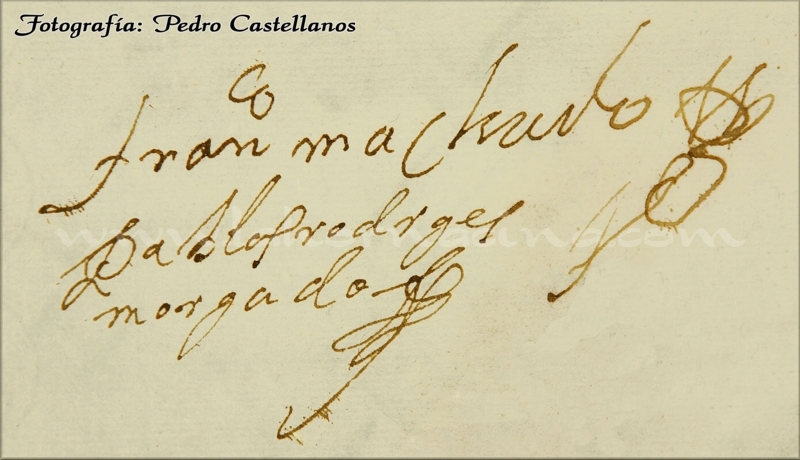 Fotografía: Pedro Castellanos
fran co machudo
Pablos rodrges
morgado